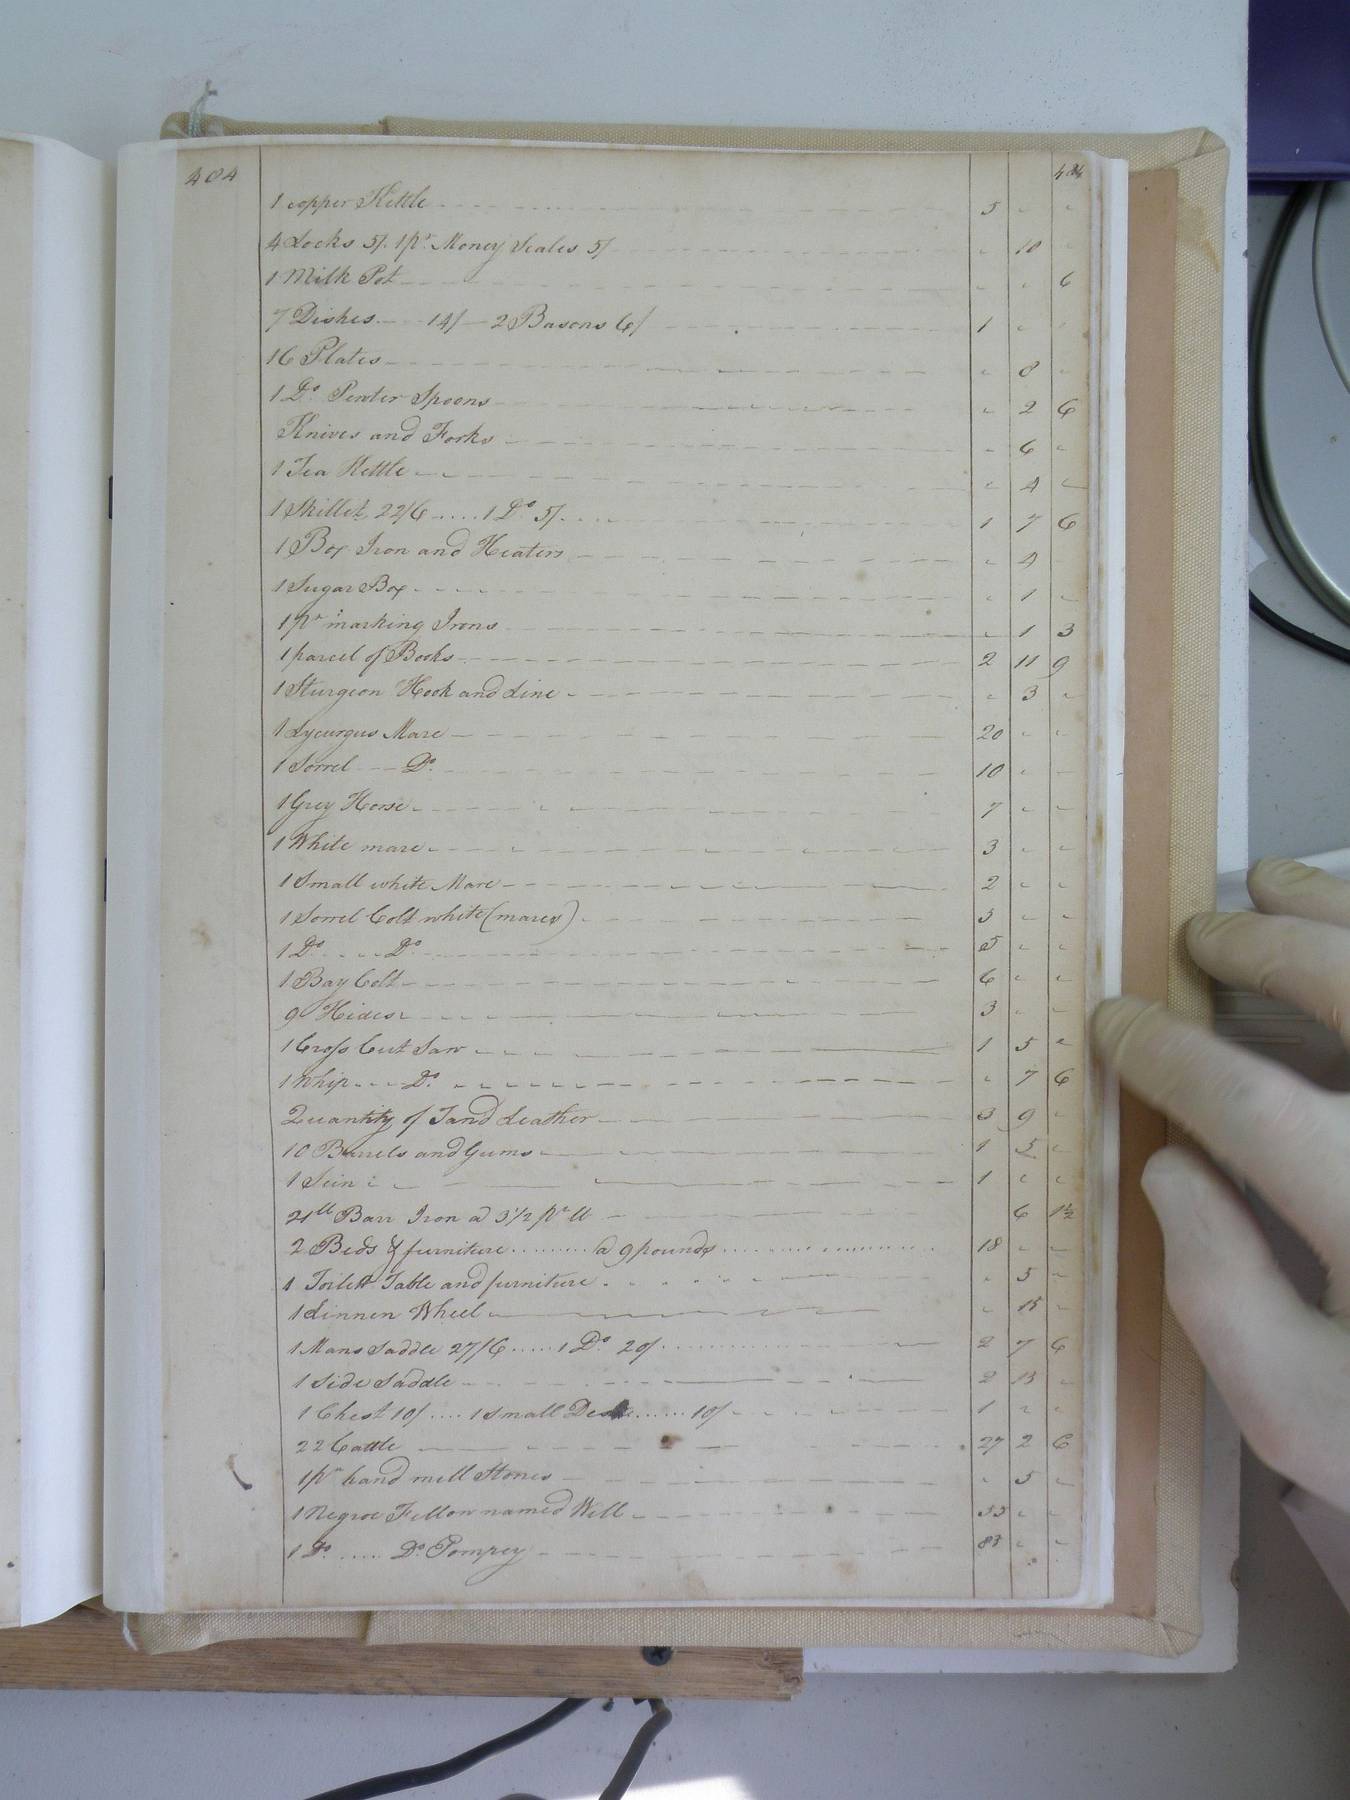 404 404
1 copper Kettle 5 " "
4 Locks 5/. 1 pr. Money Scales 5/ " 10 "
1 Milk Pot " " 6
7 Dishes 14/ 2 Basons 6/ 1 " "
16 Plates " 8 "
1 Do. Pewter Spoons " 2 6
Knives and Forks " 6 "
1 Tea Kettle " 4 "
1 Skillet 22/6 ..... 1 Do 5/. 1 7 6
1 Box Iron and Heaters " 4
1 Sugar Box " 1 "
1 pr marking Irons " 1 3
1 parcel of Books 2 11 9
1 Sturgeon Hook and Line " 3 "
1 Lycurgus Mare 20 " "
1 Sorrel Do. 10 " "
1 Grey Horse 7 " "
1 White mare 3 " "
1 Small white Mare 2 " "
1 Sorrel Colt white (mares) 5 " "
1 Do Do 5 " "
1 Bay Colt 6 " "
9 Hides 3 " "
1 Cross Cut Saw 1 5 "
1 Whip Do. " 7 6
Quantity of Tand Leather 3 9 "
10 Barrels and Gums 1 5 "
1 Sein 1 " "
21 lb Barr Iron a 3 1/2 pr lb 6 1 1/2
2 Beds & furniture ......... a 9 pounds 18 " "
1 Toilett Table and furniture " 5 "
1 Linnen Wheel " 15 "
1 Mans Saddle 27/6 ..... 1 Do. 20/ 2 7 6
1 Side Saddle 2 15 "
1 Chest 10/ .... 1 Small Desk ...... 10/ 1 " "
22 Cattle 27 2 6
1 pr hand mill Stones " 5 "
1 Negroe Fellow named Will 55 " "
1 Do. ..... Do. Pompey 85 " "